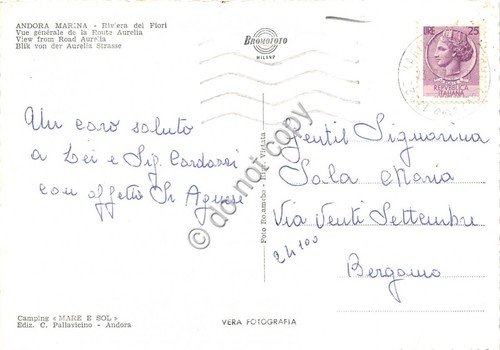 ANDORA MARINA - Riviera dei Fiori
Vue générale de la Route Aurelia
View from Road Aurelia
Blik von der Aurelia Strasse
BROMOFOTO
MILANO
LIRE 25
REPVBBLICA
ITALIANA
Un caro saluto
a Lei e Sig. Cardassi
con affetto
Gentil Signorina
Sala Maria
Via Venti Settembre
24100
Bergamo
Vietata
Camping « MARE E SOL »
Ediz. C. Pallavicino - Andora
VERA FOTOGRAFIA
© do not copy